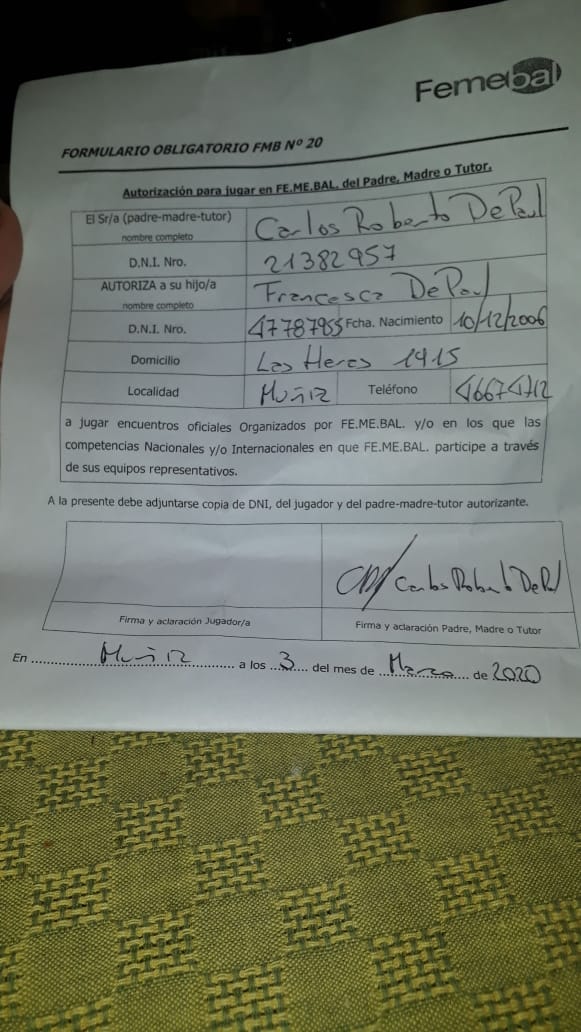 Femebal
FORMULARIO OBLIGATORIO FMB Nº 20
Autorización para jugar en FE.ME.BAL. del Padre, Madre o Tutor.
El Sr/a (padre-madre-tutor) nombre completo Carlos Roberto De Paul
D.N.I. Nro. 21382957
AUTORIZA a su hijo/a nombre completo Francesca De Paul
D.N.I. Nro. 47787955 Fcha. Nacimiento 10/12/2006
Domicilio Las Heras 1915
Localidad Muñiz Teléfono 46674712
a jugar encuentros oficiales Organizados por FE.ME.BAL. y/o en los que las
competencias Nacionales y/o Internacionales en que FE.ME.BAL. participe a través
de sus equipos representativos.
A la presente debe adjuntarse copia de DNI, del jugador y del padre-madre-tutor autorizante.
Carlos Roberto De Paul
Firma y aclaración Jugador/a Firma y aclaración Padre, Madre o Tutor
En Muñiz a los 3 del mes de Marzo de 2020